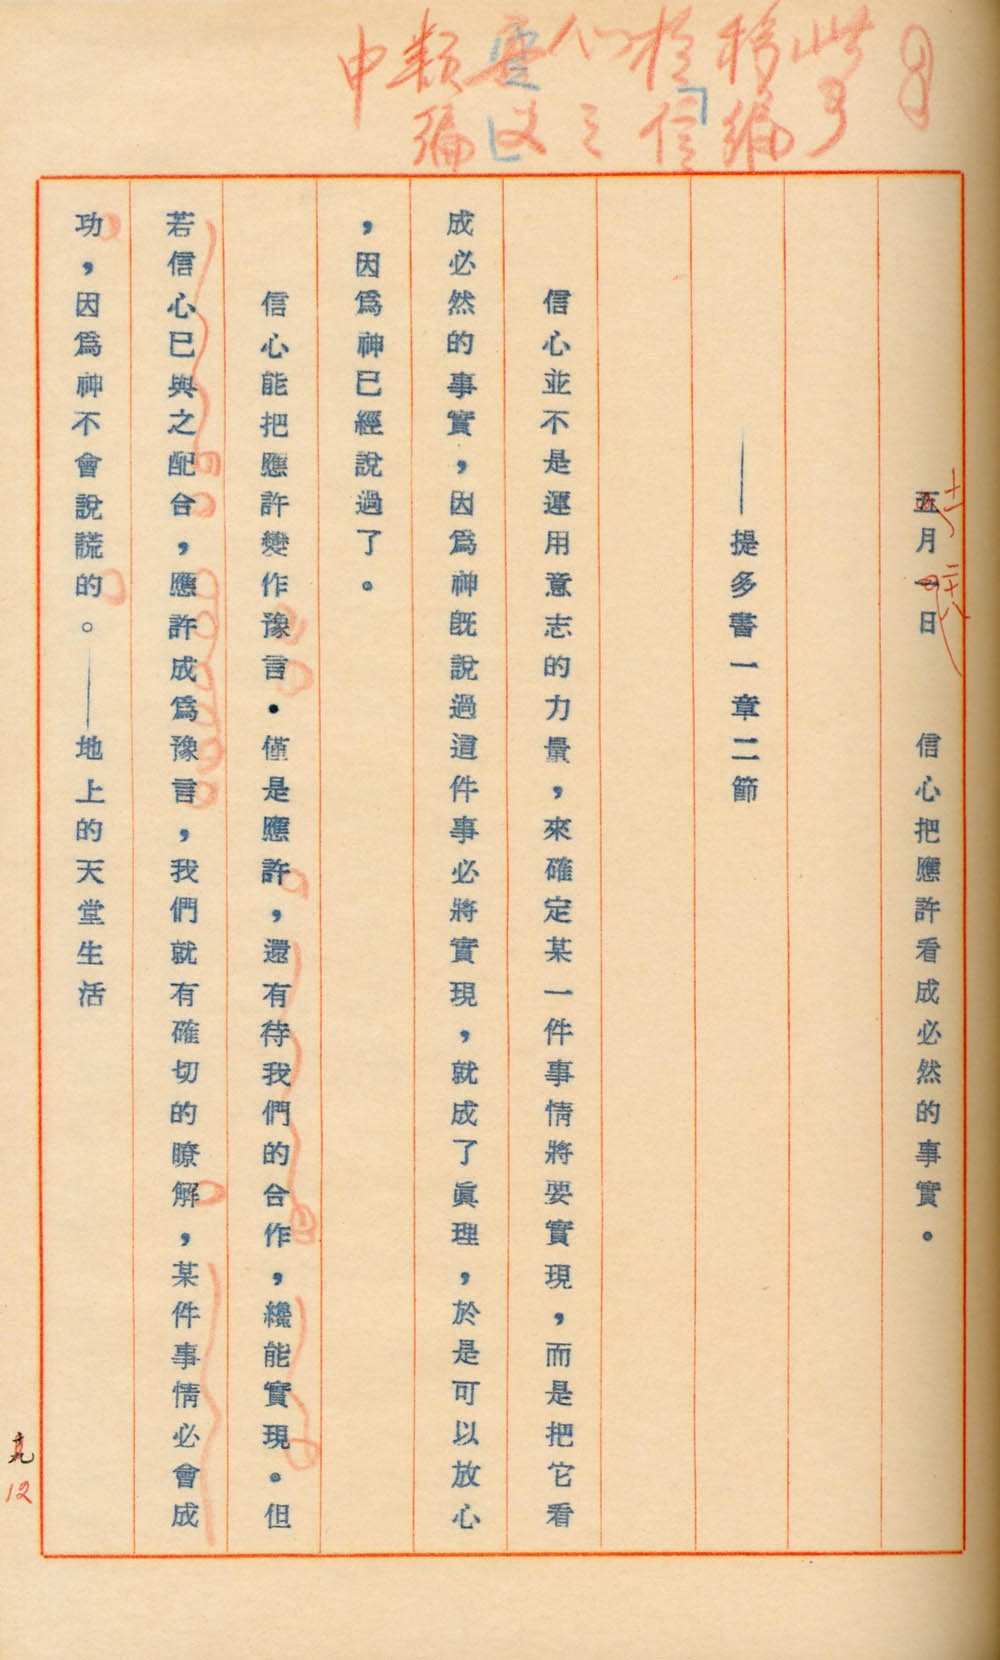 此 移 於 人 要 類 中
可 編 信 之 文 編
五月一日　　信心把應許看成必然的事實。
十一
二十八
——提多書一章二節
信心並不是運用意志的力量，來確定某一件事情將要實現，而是把它看
成必然的事實，因爲神既說過這件事必將實現，就成了眞理，於是可以放心
，因爲神已經說過了。
信心能把應許變作豫言．僅是應許，還有待我們的合作，纔能實現。但
若信心已與之配合，應許成爲豫言，我們就有確切的瞭解，某件事情必會成
功，因爲神不會說謊的。——地上的天堂生活
12